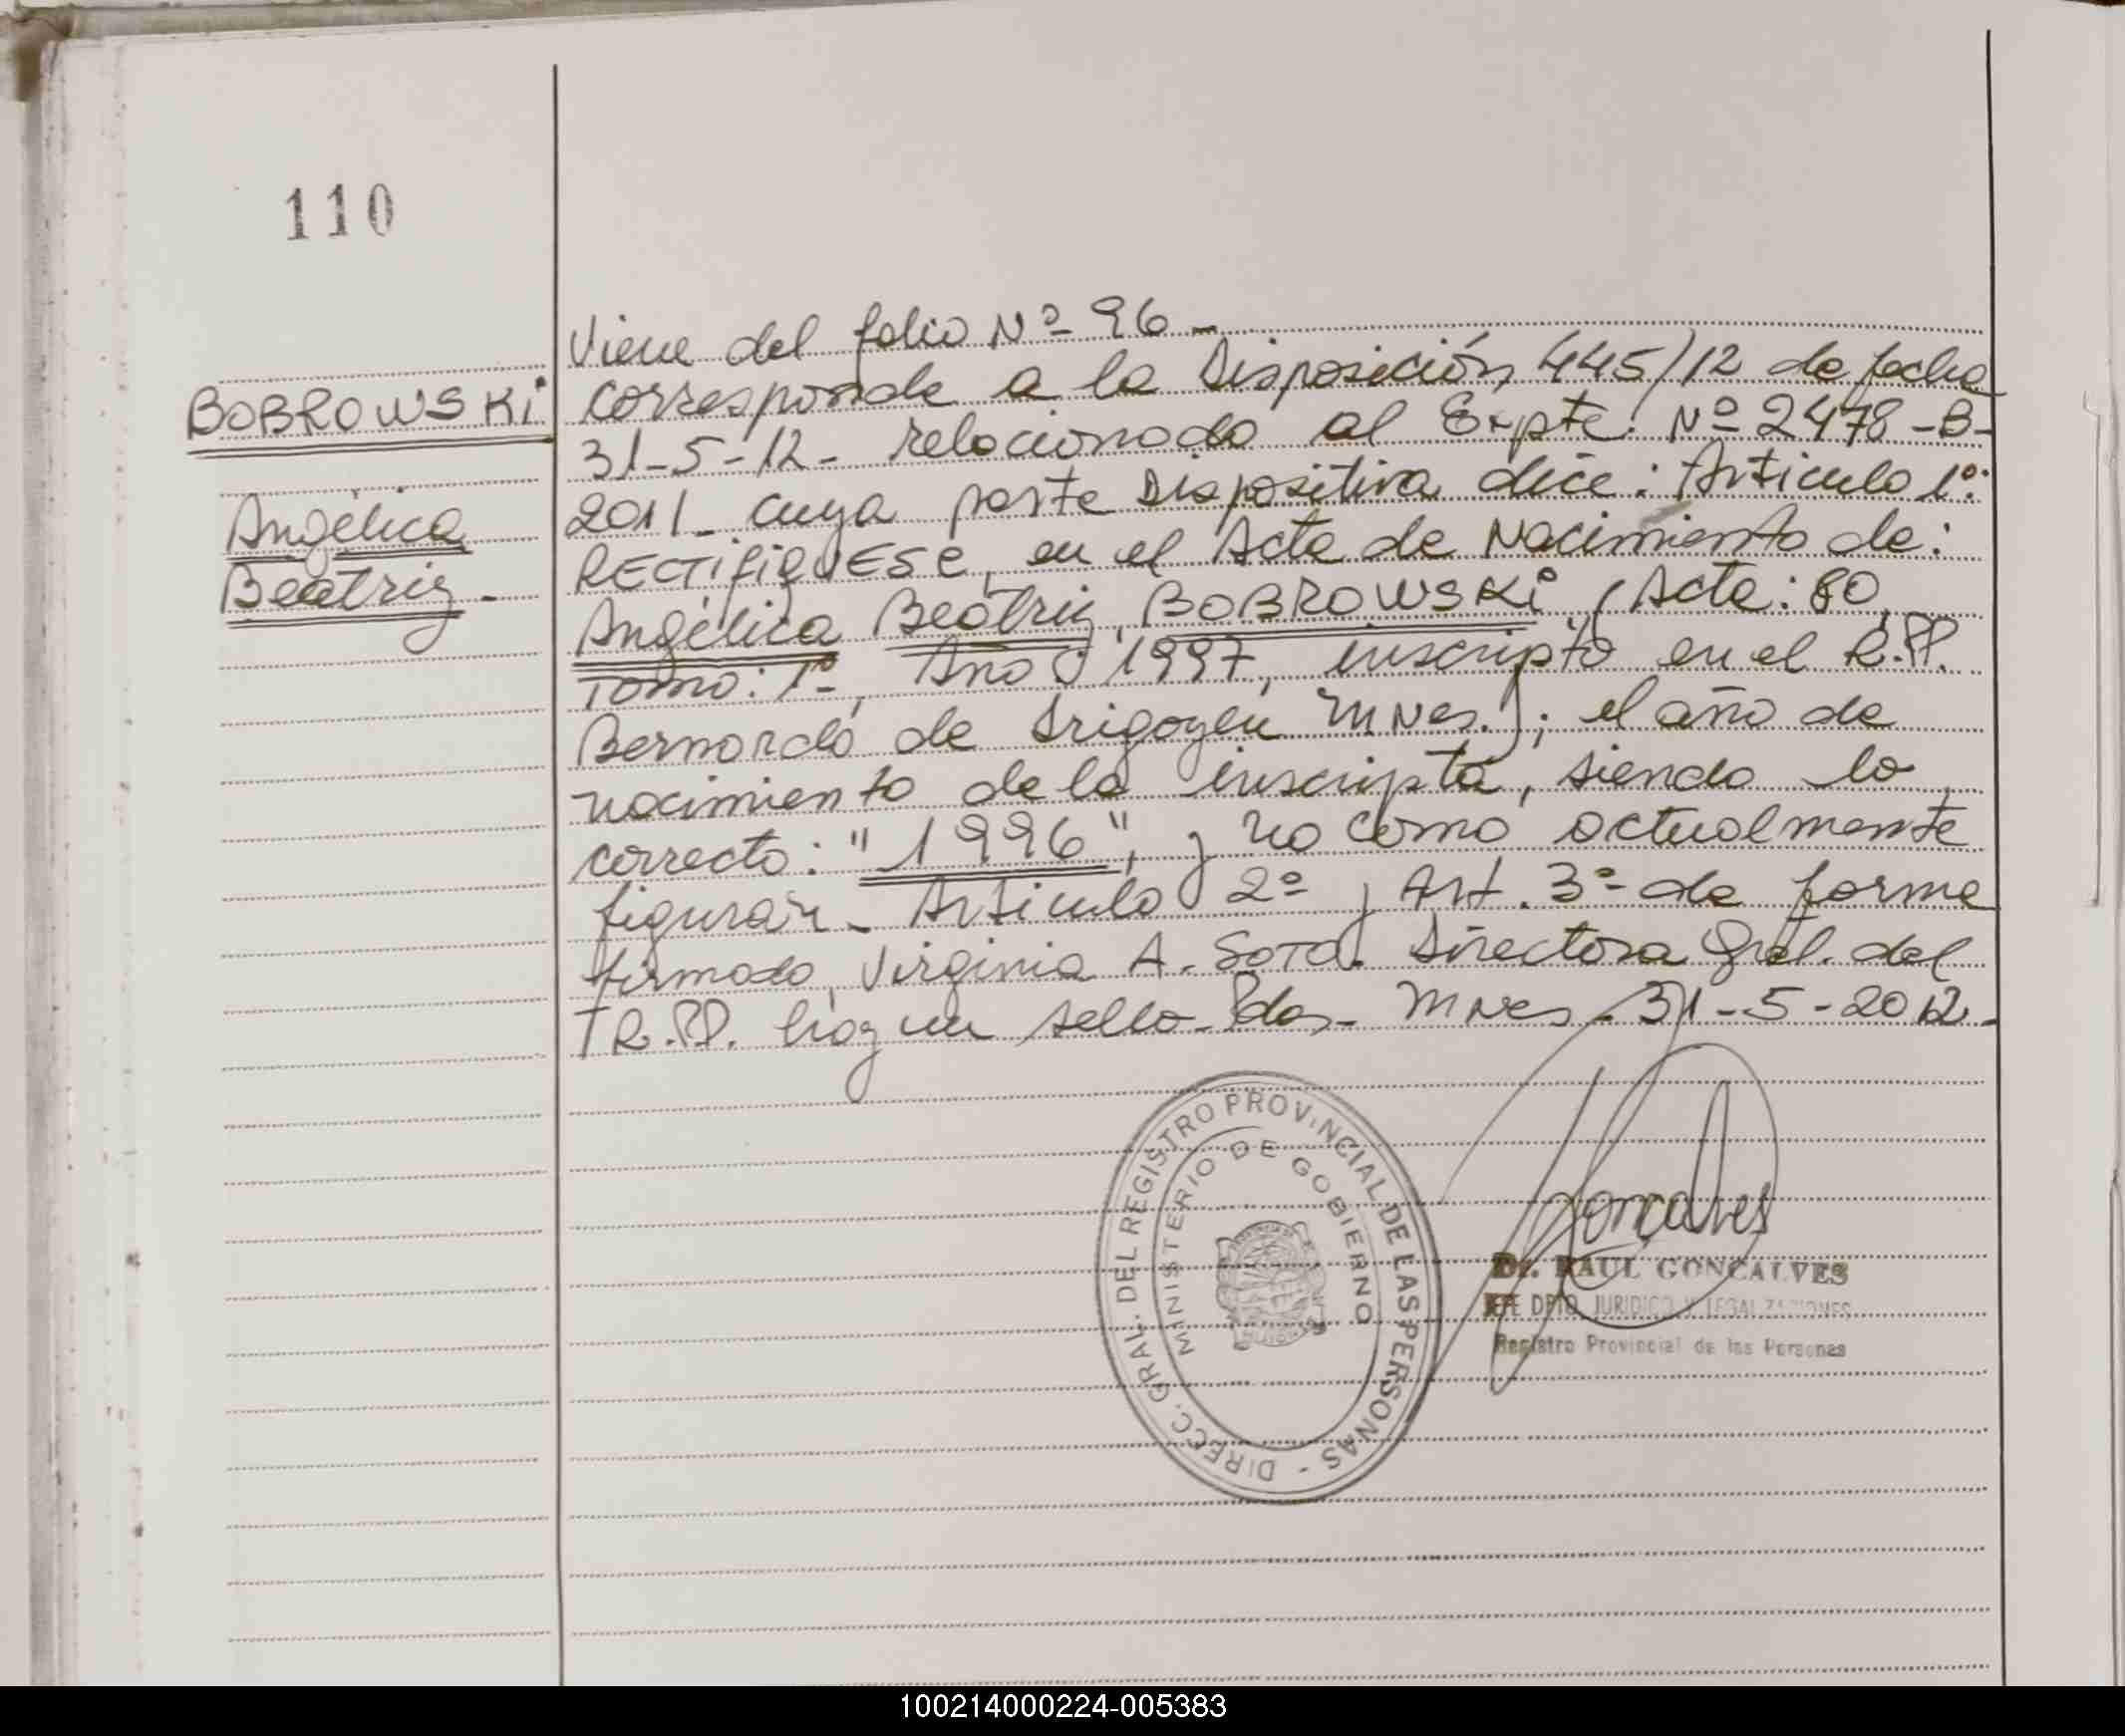 110
BOBROWSKI
Angélica
Beatriz -
Viene del folio Nº 96 -
corresponde a la Disposición 445/12 de fecha
31-5-12- relacionado al Expte. Nº 2478-B-
2011- cuya parte Dispositiva dice: Articulo 1º:
RECTIFIQUESE, en el Acta de Nacimiento de:
Angélica Beatriz BOBROWSKI (Acta: 80,
Tomo: 1º, Año: 1997, inscripto en el R.P.P.
Bernardo de Irigoyen Mnes.); el año de
nacimiento de la inscripta, siendo lo
correcto: "1996", y no como actualmente
figurar- Articulo 2º y Art. 3º de forma
firmado, Virginia A. Soto. Directora Gral. del
R.P.P. hay un sello- Pdas- Mnes- 31-5-2012.-
DIRECC. GRAL. DEL REGISTRO PROVINCIAL DE LAS PERSONAS -
MINISTERIO DE GOBIERNO
Goncalves
Dr. RAUL GONCALVES
JEFE DPTO. JURIDICO Y LEGALIZACIONES
Registro Provincial de las Personas
100214000224-005383